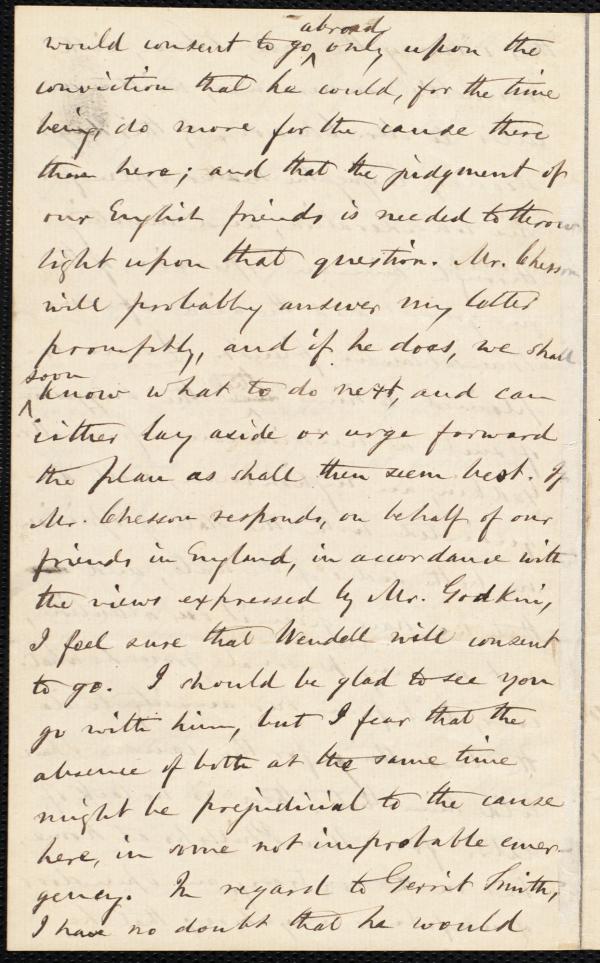 would consent to go abroad only upon the
conviction that he could, for the time
being, do more for the cause there
than here; and that the judgment of
our English friends is needed to throw
light upon that question. Mr. Chesson
will probably answer my letter
promptly, and if he does, we shall
soon know what to do next, and can
either lay aside or urge forward
the plan as shall then seem best. If
Mr. Chesson responds, on behalf of our
friends in England, in accordance with
the views expressed by Mr. Godkin,
I feel sure that Wendell will consent
to go. I should be glad to see you
go with him, but I fear that the
absence of both at the same time
might be prejudicial to the cause
here, in some not improbable emer-
gency. In regard to Gerrit Smith,
I have no doubt that he would